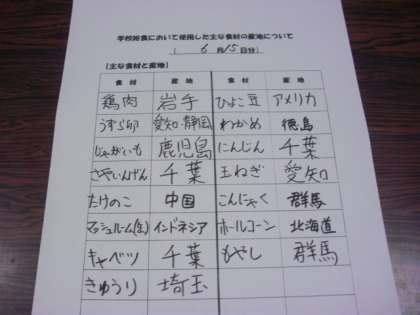 学校給食において使用した主な食材の産地について
( 6月15日分)
[主な食材と産地]
食材 産地 食材 産地
鶏肉 岩手 ひよこ豆 アメリカ
うずら卵 愛知・静岡 わかめ 徳島
じゃがいも 鹿児島 にんじん 千葉
さやいんげん 千葉 玉ねぎ 愛知
たけのこ 中国 こんにゃく 群馬
マッシュルーム(缶) インドネシア ホールコーン 北海道
キャベツ 千葉 もやし 群馬
きゅうり 埼玉